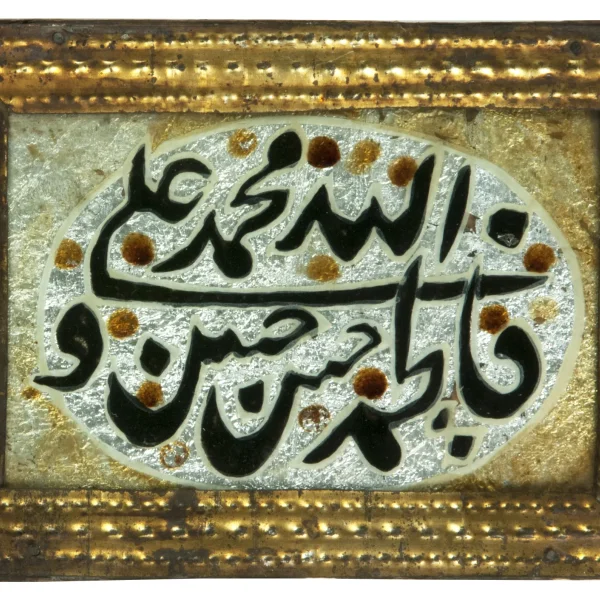 الله محمد علی
فاطمه حسن حسین و